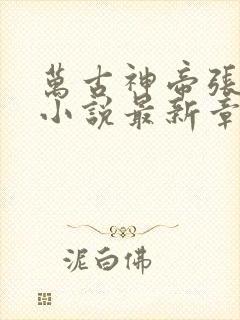 萬古神帝張
小說最新章
泥白佛